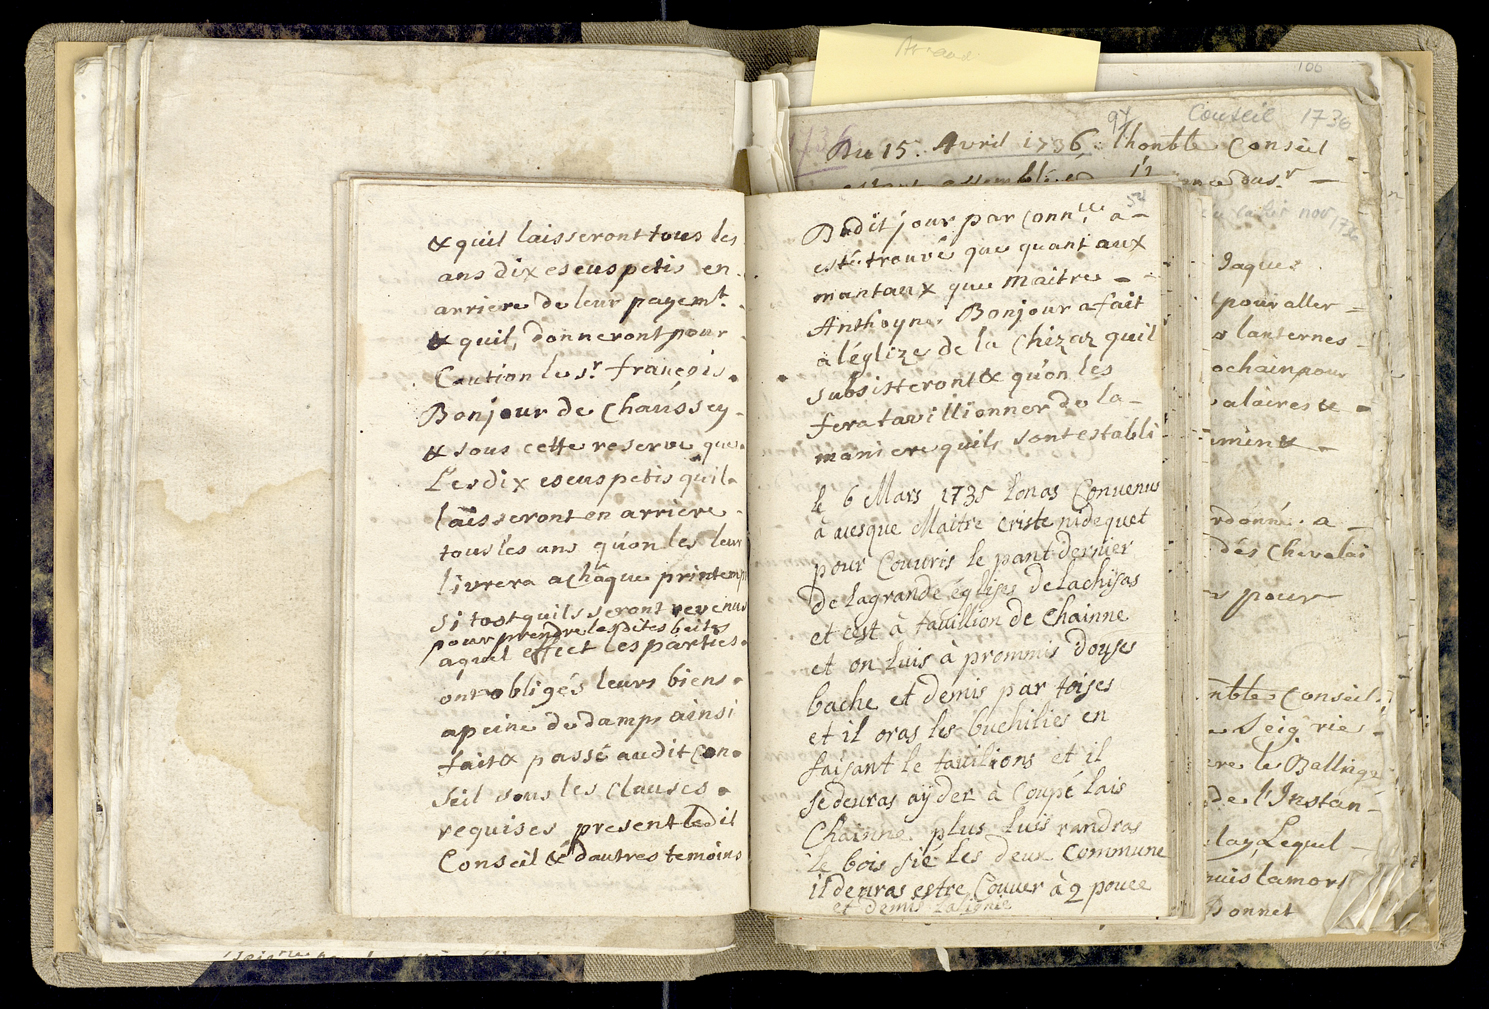 & quil laisseront tous les
ans dix escus petis en
arriere de leur payemt.
& quil, donneront pour
Caution le sr. françois
Bonjour de Chaussey
& sous cette reserve que
Les dix escus petis quil
laisseront en arriere
tous les ans qu'on les leur
livrera a chaque printemp
si tost quils seront revenus
pour prendre les dites
aquel effect les parties
ont obligés leurs biens
a peine de damps ainsi
fait & passé audit Con
seil sous les Clauses
requises present ledit
Conseil & d'autres temoins
54
Dudit jour par Connlle a
esté trouvé que quant aux
mantaux que Maitre
Anthoyne Bonjour a fait
a l'églize de la Chizaz quil
subsisteront & qu'on les
fera tavillionner de la
maniere quils sont establi
le 6 Mars 1735 Lonas Convenus
à avesque Maitre Criste nideguet
pour Couvris le pant dernier
de la grande églises de lachisas
et cest à tavillion de Chainne
et on luis à prommis douses
bache et demis par toises
et il oras les buchilies en
faisant le tavilions et il
se devras ayder à Coupé lais
Chainne plus luis randras
le bois sié les deux Commune
il devras estre Couver à 2 pouce
et demis
Conseil 1736
97
106
Du 15. Avril 1736. l'honble Conseil
nov 1736
Jaques
pour aller
lanternes
ochain pour
alaires &
ordonné a
dés Chevalai
pour
nble Conseil
Seigrie
ere le Ballinge
de l'Instan
lay, Lequel
uis la mort
Bonnet